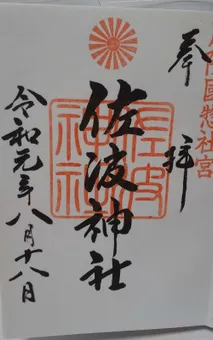 奉拝
周防國惣社宮
佐波神社
佐波神社
令和元年八月十八日